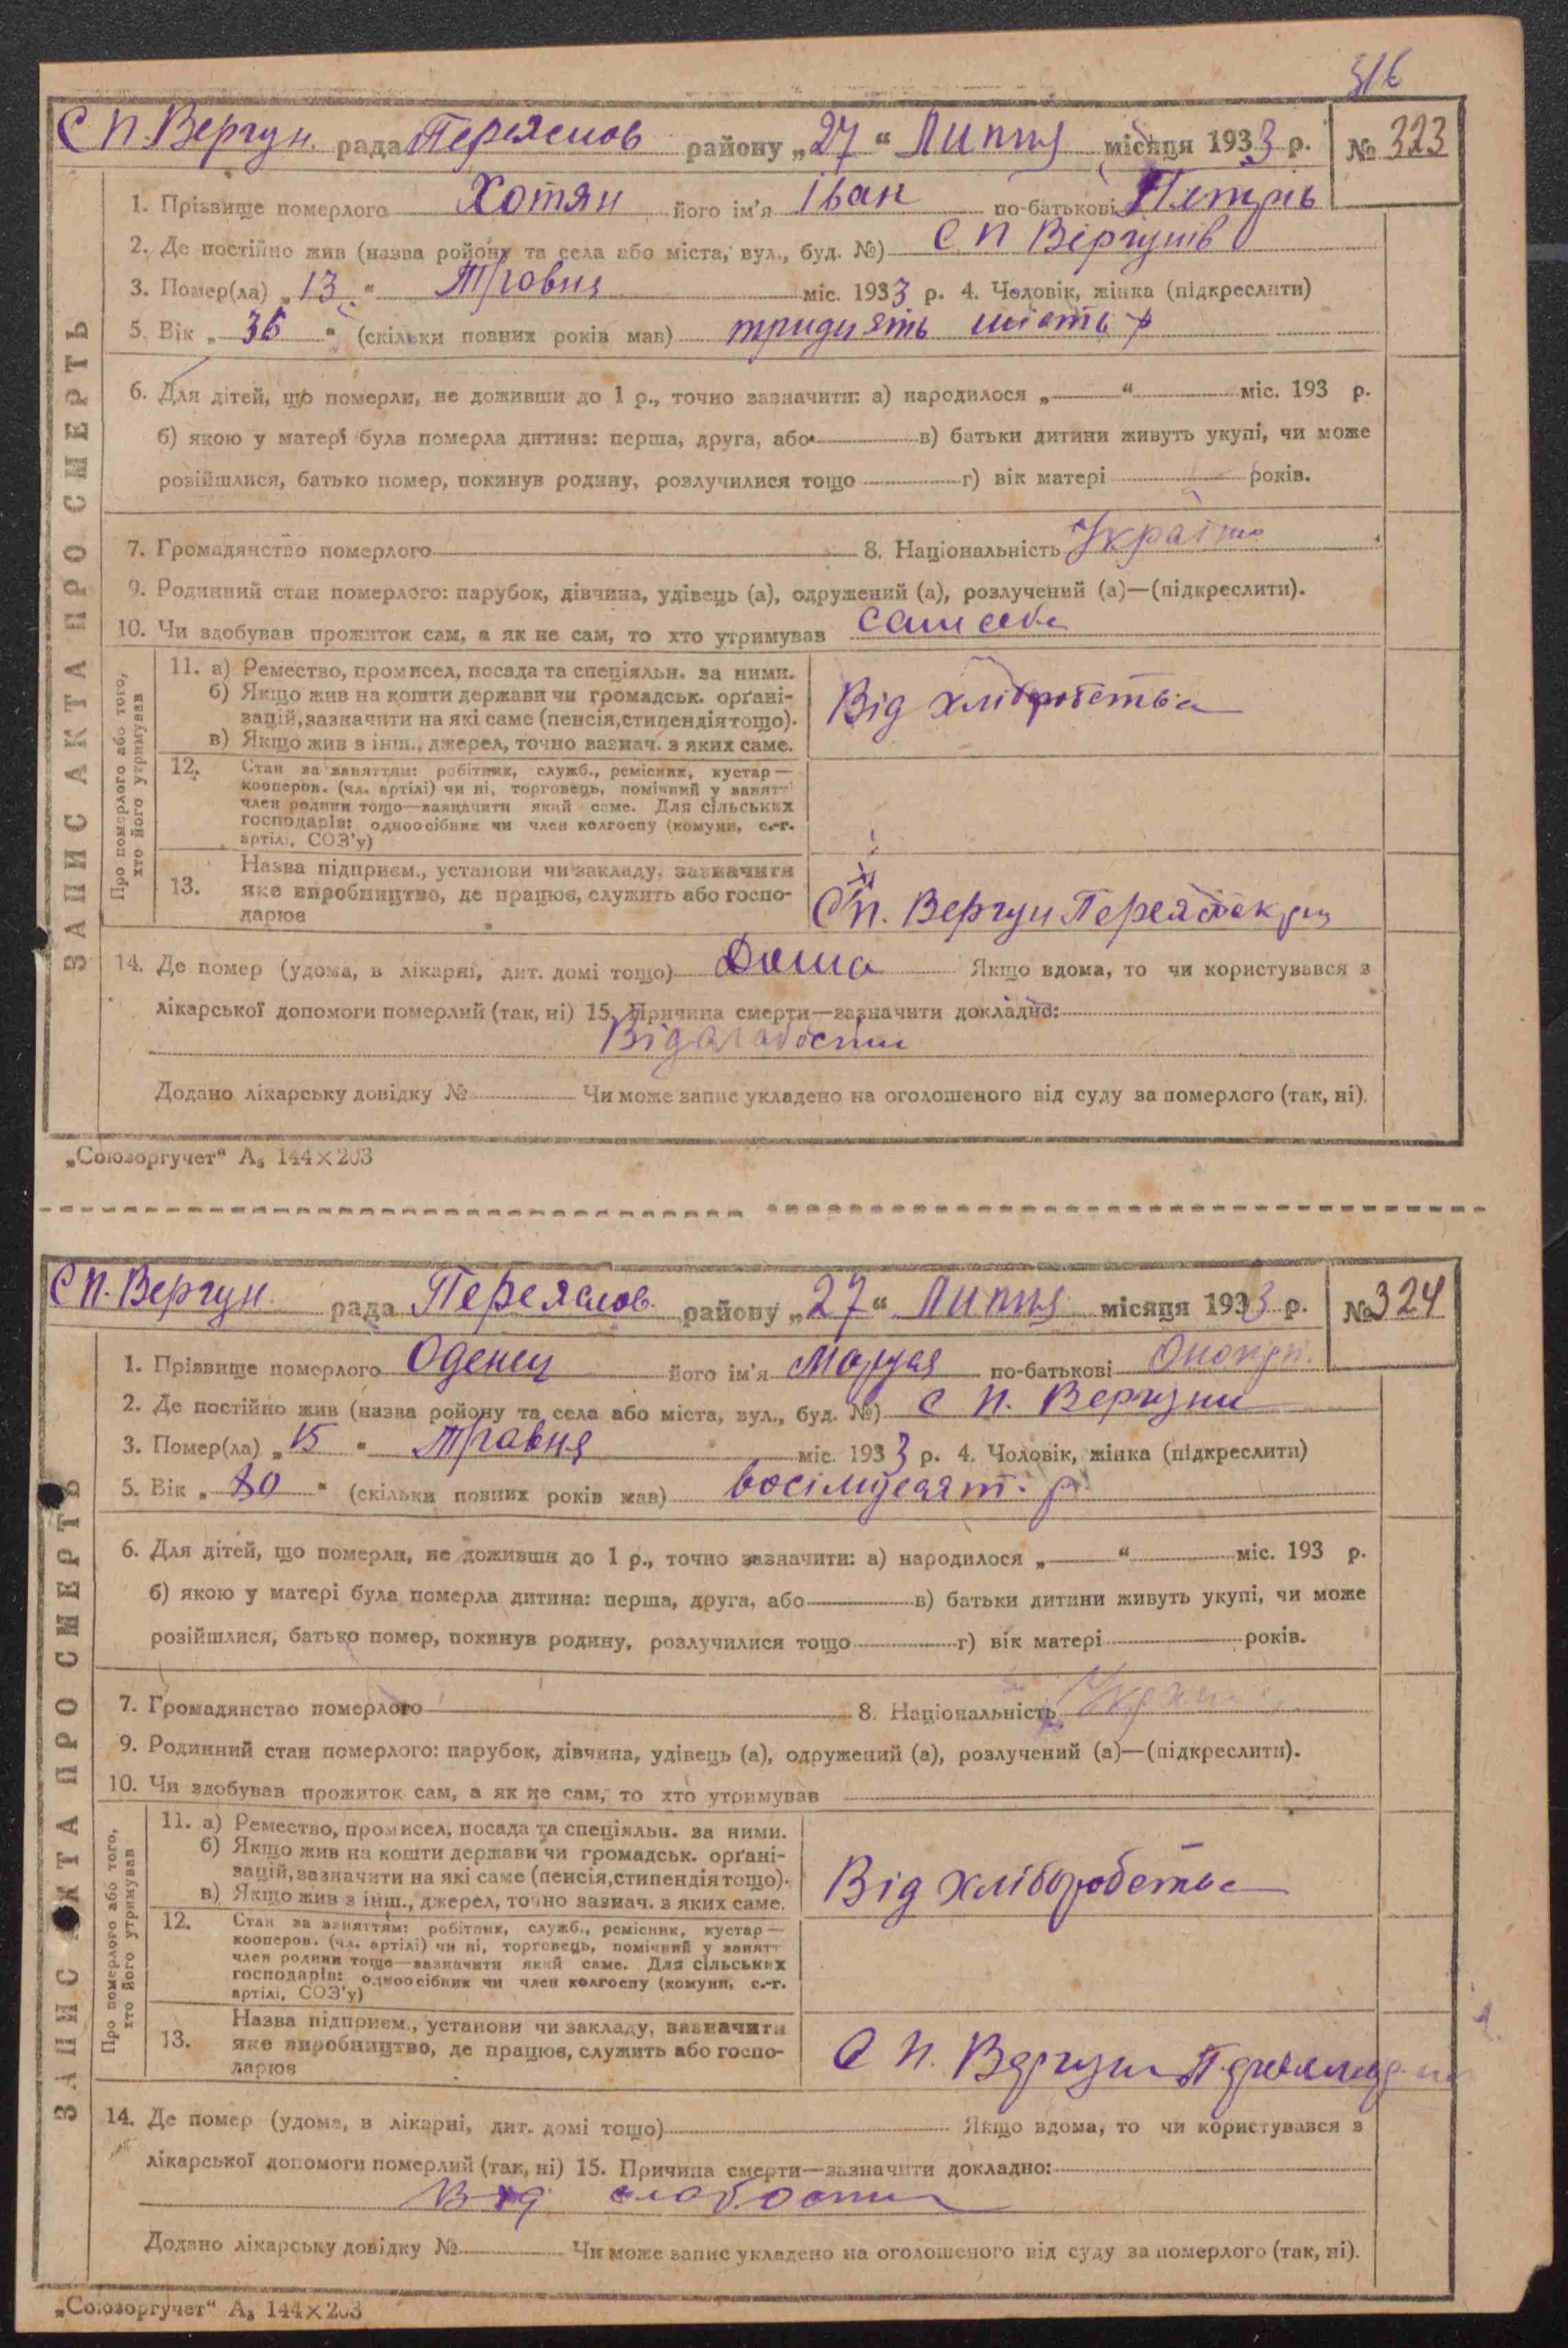 316
С П. Вергун. рада Переяслов району „27“ Липня місяця 1933 р. № 323
1. Прізвище померлого Хотян його ім'я Іван по-батькові Петрів
2. Де постійно жив (назва ройону та села або міста, вул., буд. №) С П Віргунів
3. Помер(ла) „13“ Тровня міс. 1933 р. 4. Чоловік, жінка (підкреслити)
5. Вік „36“ (скільки повних років мав) тридцять шість р
6. Для дітей, що померли, не доживши до 1 р., точно зазначити: а) народилося „ “ міс. 193 р.
б) якою у матері була померла дитина: перша, друга, або в) батьки дитини живуть укупі, чи може
розійшлися, батько помер, покинув родину, розлучилися тощо г) вік матері років.
7. Громадянство померлого 8. Національність
9. Родинний стан померлого: парубок, дівчина, удівець (а), одружений (а), розлучений (а)—(підкреслити).
10. Чи здобував прожиток сам, а як не сам, то хто утримував сам себе
ЗАПИС АКТА ПРО СМЕРТЬ
Про померлого або того, хто його утримував
11. а) Ремество, промисел, посада та спеціяльн. за ними.
б) Якщо жив на кошти держави чи громадськ. орґані-
зацій, зазначити на які саме (пенсія, стипендія тощо).
в) Якщо жив з інш., джерел, точно вазнач. з яких саме.
Від хліборобства
12. Стан за заняттям: робітник, служб., ремісник, кустар—
кооперов. (чл. артілі) чи ні, торговець, помічний у занятт
член родини тощо—зазначити який саме. Для сільських
господарів: одноосібник чи член колгоспу (комуни, с.-г.
артілі, СОЗ'у)
13. Назва підприєм., установи чи закладу, зазначити
яке виробництво, де працює, служить або госпо-
дарює
С п. Вергун
14. Де помер (удома, в лікарні, дит. домі тощо) Дома Якщо вдома, то чи користувався з
лікарської допомоги померлий (так, ні) 15. Причина смерти—зазначити докладно:
Від слабости
Додано лікарську довідку № Чи може запис укладено на оголошеного від суду за померлого (так, ні).
„Союзоргучет“ А₅ 144×203
С П. Вергун. рада Переяслов. району „27“ Липня місяця 1933 р. № 324
1. Прізвище померлого Оденец його ім'я по-батькові
2. Де постійно жив (назва ройону та села або міста, вул., буд. №) С П. Вергуни
3. Помер(ла) „15“ Травня міс. 1933 р. 4. Чоловік, жінка (підкреслити)
5. Вік „80“ (скільки повних років мав) восімдесят. р.
6. Для дітей, що померли, не доживши до 1 р., точно зазначити: а) народилося „ “ міс. 193 р.
б) якою у матері була померла дитина: перша, друга, або в) батьки дитини живуть укупі, чи може
розійшлися, батько помер, покинув родину, розлучилися тощо г) вік матері років.
7. Громадянство померлого 8. Національність
9. Родинний стан померлого: парубок, дівчина, удівець (а), одружений (а), розлучений (а)—(підкреслити).
10. Чи здобував прожиток сам, а як не сам, то хто утримував
ЗАПИС АКТА ПРО СМЕРТЬ
Про померлого або того, хто його утримував
11. а) Ремество, промисел, посада та спеціяльн. за ними.
б) Якщо жив на кошти держави чи громадськ. орґані-
зацій, зазначити на які саме (пенсія, стипендія тощо).
в) Якщо жив з інш., джерел, точно зазнач. з яких саме.
Від хліборобства
12. Стан за заняттям: робітник, служб., ремісник, кустар—
кооперов. (чл. артілі) чи ні, торговець, помічний у занятт
член родини тоще—зазначити який саме. Для сільських
господарів: одноосібник чи член колгоспу (комуни, с.-г.
артілі, СОЗ'у)
13. Назва підприєм., установи чи закладу, зазначити
яке виробництво, де працює, служить або госпо-
дарює
С П. Вергун
14. Де помер (удома, в лікарні, дит. домі тощо) Якщо вдома, то чи користувався з
лікарської допомоги померлий (так, ні) 15. Причина смерти—зазначити докладно:
Від слабости
Додано лікарську довідку № Чи може запис укладено на оголошеного від суду за померлого (так, ні).
„Союзоргучет“ А₅ 144×203